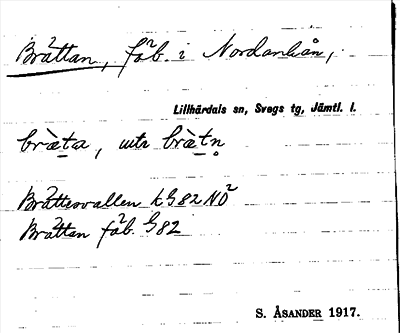 Brättan, fäb. i Nordanhån,
Lillhärdals sn, Svegs tg, Jämtl. l.
bræ̀ta, utr bræ̀tn̥
Brättesvallen kG82NÖ
Brättan fäb. G82
S. ÅSANDER 1917.